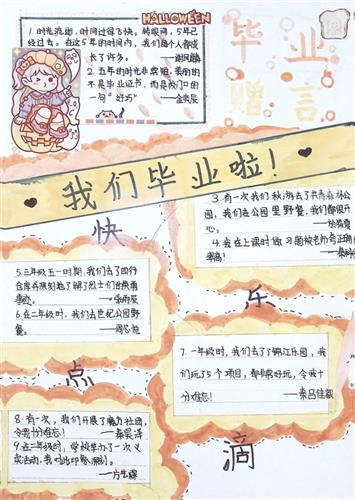 HALLOWEEN
1. 时光荏苒，时间过得飞快。转眼间，5年已
经过去。在这5年的时间内，我们每个人都成
长了许多。
2. 五年的时光非常短，某的的
不是毕业证书，而是我们口的
一句“好巧”——金宸
毕业
赠言
我们毕业啦！
快乐点滴
3. 有一次我们秋游去了共青森林公
园，我们在公园里野餐，我们都很开
心。
4. 我在上课时做习题被老师夸正确
率高！
5. 三年级五一时期，我们去了四行
仓库
事迹。
6. 在二年级时，我们去世纪公园野
餐。
7. 一年级时，我们去了了锦江乐园，我
们玩了5个项目，都非常好玩，令我十
分难忘！——秦吕佳毅
8. 有一次，我们开展了魔方社团，
令我十分难忘！——秦昊泽
9. 在二年级时，学校举办了一次义
卖活动，我对此印象深刻。